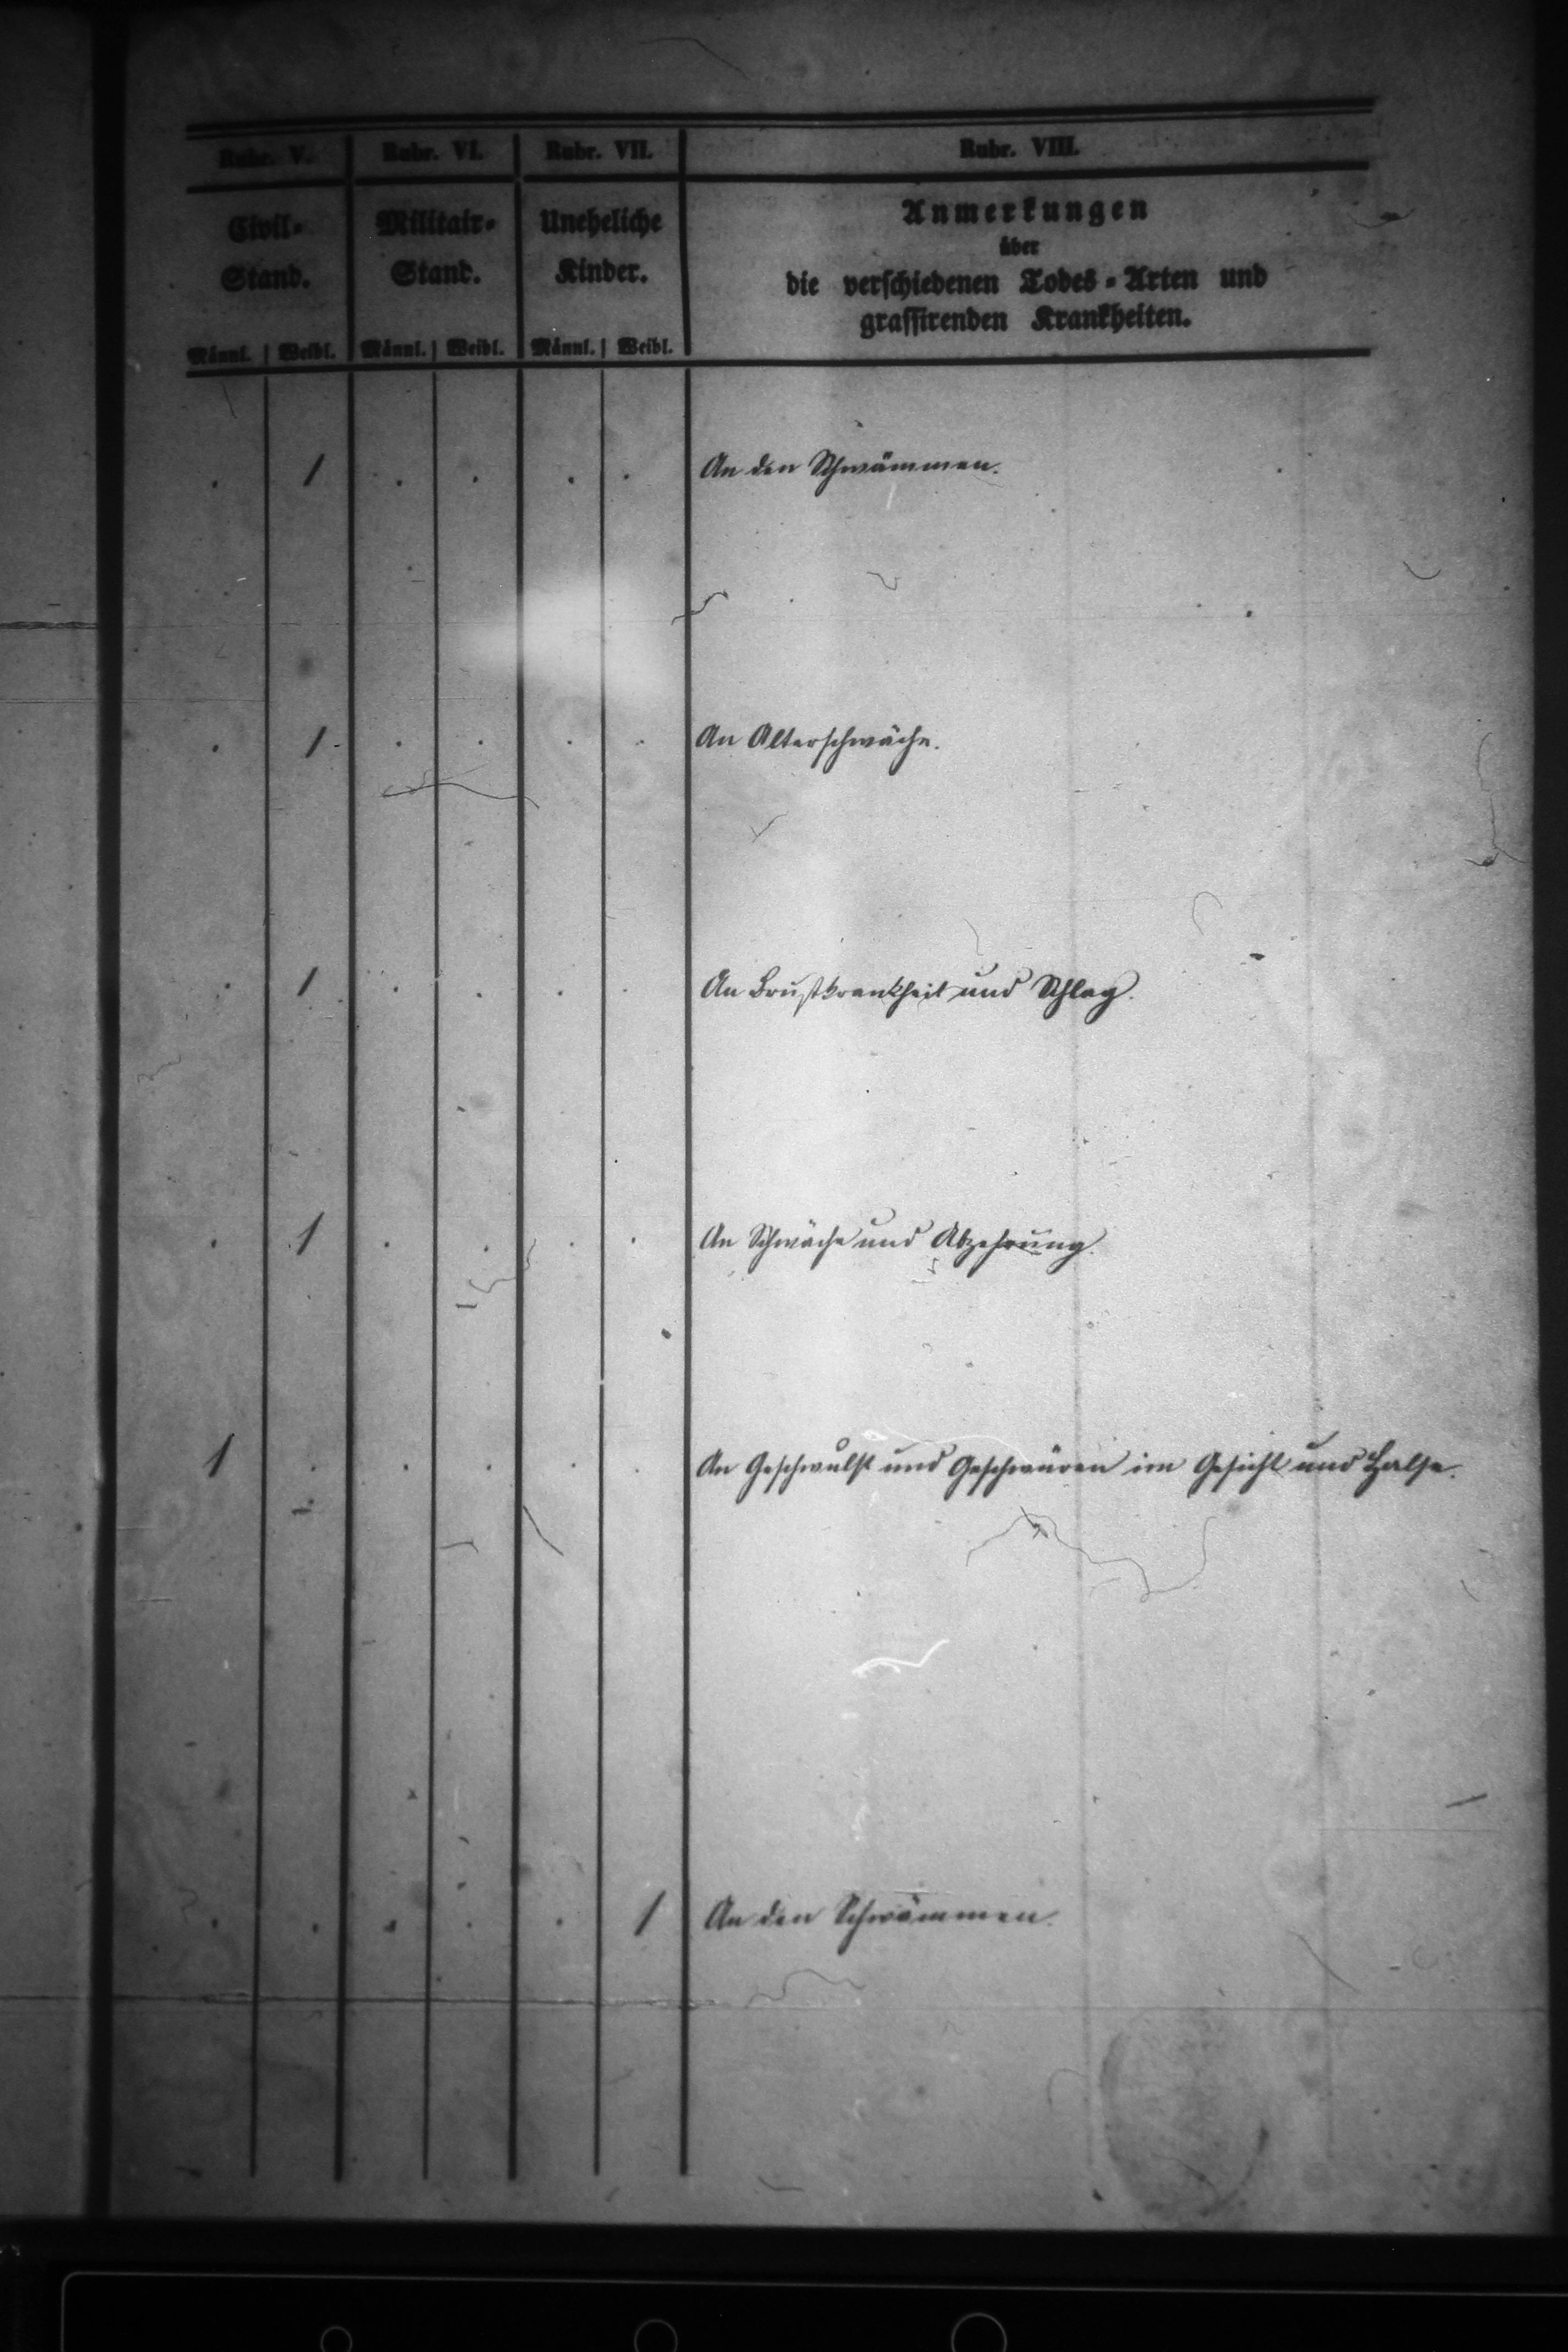 Rubr. V. Rubr. VI. Rubr. VII. Rubr. VIII.
Civil- Militair- Uneheliche Anmerkungen
über
Stand. Stand. Kinder. die verschiedenen Todes-Arten und
grassirenden Krankheiten.
Männl. Weibl. Männl. Weibl. Männl. Weibl.
. 1 . . . . An den Schwämmen.
. 1 . . . . An Alterschwäche.
. 1 . . . . An Brustkrankheit und Schlag.
. 1 . . . . An Schwäche und Abzehrung.
1 . . . . . An Geschwulst und Geschwüren im Gesicht und Halse.
. . . . . 1 An den Schwämmen.